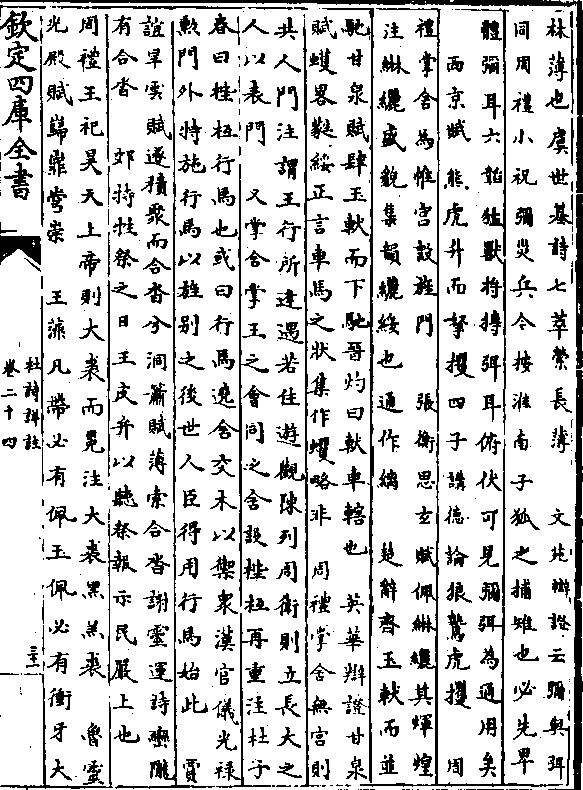 林薄也虞世基詩七萃縈長薄　文苑辯證云彌與弭
同周禮小祝彌災兵今按淮南子狐之捕雉也必先卑
體彌耳六韜猛獸將搏弭耳俯伏可見彌弭為通用矣
西京賦熊虎升而拏攫四子講德論狼驚虎攫　周
禮掌舍為帷宮設旌門　張衡思玄賦佩綝纚其煇煌
注綝纚盛貌集韻纚綏也通作縭　楚辭齊玉軑而並
馳甘泉賦肆玉軑而下馳晉灼曰軑車轄也　英華辯證甘泉
賦蠖畧蕤綏正言車馬之狀集作蠼略非　周禮掌舍無宮則
共人門注謂王行所逢遇若住遊觀陳列周衛則立長大之
人以表門　又掌舍掌王之會同之舍設梐枑再重注杜子
春曰梐枑行馬也或曰行馬遶舍交木以禦衆漢官儀光祿
勲門外特施行馬以旌別之後世人臣得用行馬始此　賈
誼旱雲賦遂積聚而合沓兮洞簫賦薄索合沓謝靈運詩巒隴
有合沓　郊特牲祭之日王皮弁以聽祭報示民嚴上也
周禮王祀昊天上帝則大裘而冕注大裘黑羔裘　魯靈
光殿賦巋㠑穹崇　王藻凡帶必有佩玉佩必有衝牙大
欽定四庫全書
杜詩詳註
卷二十四